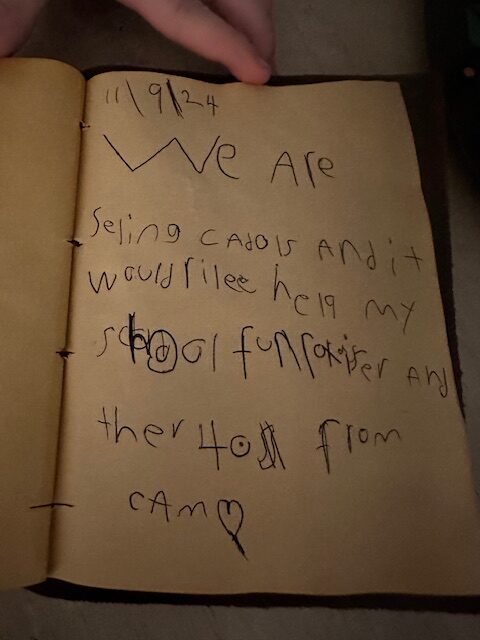 11\9\24
We Are
Seling cAdols And it
would rilee help my
school funraiser And
ther 40$ from
cAm♡